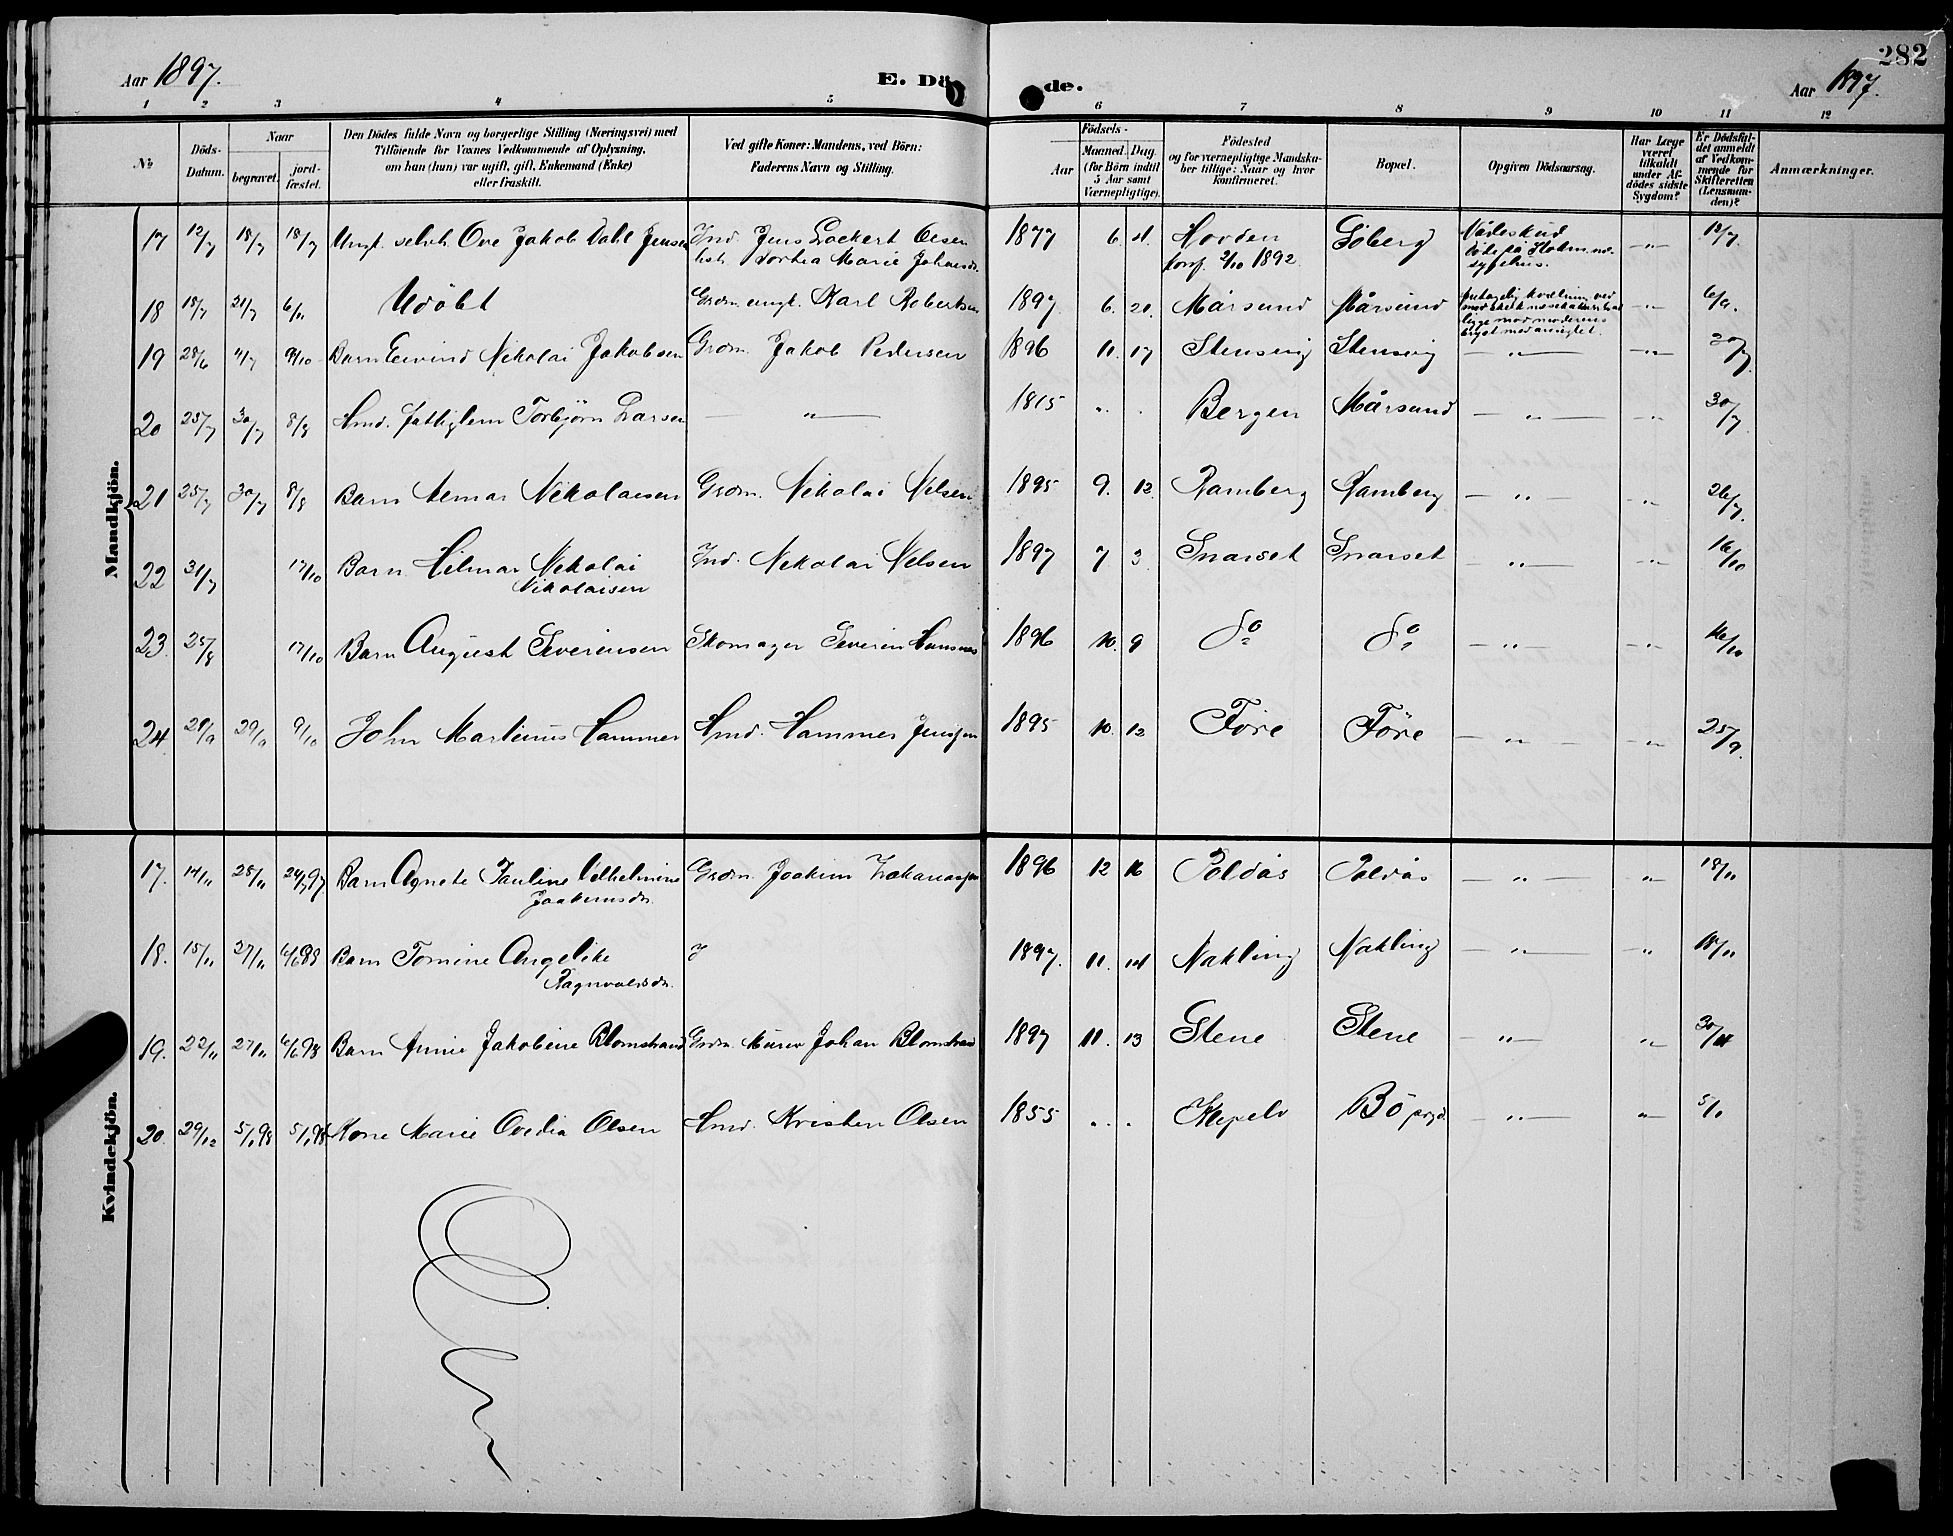 Aar 1897. E. Dö de. Aar 1897. 282
1 2 3 4 5 6 7 8 9 10 11 12
No
Döds-Datum.
Naar
begravet.
jord-fæstet.
Den Dödes fulde Navn og borgerlige Stilling (Næringsvei) med
Tilföiende for Voxnes Vedkommende af Oplysning,
om han (hun) var ugift, gift, Enkemand (Enke)
eller fraskilt.
Ved gifte Koner: Mandens, ved Börn:
Faderens Navn og Stilling.
Födsels-
Aar
Maaned. Dag.
(for Börn indtil
5 Aar samt
Værnepligtige).
Födested
og for værnepligtige Mandska-
ber tillige: Naar og hvor
konfirmeret.
Bopæl.
Opgiven Dödsaarsag.
Har Læge
været
tilkaldt
under Af-
dödes sidste
Sygdom?
Er Dödsfal-
det anmeldt
af Vedkom-
mende for
Skifteretten
(Lensman-
den)?
Anmærkninger.
Mandkjön.
17 12/7 18/7 18/7 Ungk. selvh. Ove Jakob Dahl Jensen Ind. Jens Lockert Olsen 1877 6. Hovden Göberg Vådeskud 12/7.
Dortea Marie konf. 2/10 1892. döde på
sygehus.
18 18/7 21/7 6/11 Udöbt Grdm. ungk. Karl Robertsen 1897 6. 20. Mårsund Mårsund
19 28/6 9/10 Barn Eivind Nikolai Jakobsen Grdm. Jakob Pedersen 1896 11. 17 Stensvig Stensvig — " — — " —
20 25/7 30/7 8/8 Hmd. fattiglem Torbjörn Larsen — " — 1815 Bergen Mårsund — " — — " — 30/7
21 25/7 30/7 8/8 Barn Nikolaisen Grdm. Nikolai Nilsen 1895 9. 12. Ramberg Ramberg — " — — " 26/7.
22 31/7 17/10 Barn Hilmar Nikolai Ind. Nikolai Nilsen 1897 7 3. Snarset Snarset — " — — " 16/10
Nikolaisen
23. 25/8 17/10 Barn August Severinsen Skomager Severin Hansen 1896 10. 9 do do — " — — " — 16/10
24. 29/9 9/10 John Martinus Hammer Hmd. Hammer Jensen 1895 10. 12 Före Före — " — — " 25/9.
Kvindekjön.
17. 14/11 28/11 24/7 97 Barn Agnete Pauline Vilhelmine Grdm. Joakim Zakariassen 1896 12 16 Poldås Poldås — " — " 18/11
Joakimsdr.
18. 15/11 27/11 98 Barn Tomine Angelike 1897. 11. 14 Nakling Nakling — " — " 18/11
Ragnvaldsdr.
19. 22/11 27/11 98 Barn Annie Jakobine Blomstrand Grdm. Murer Johan Blomstrand 1897 11. 13 Stene Stene — " — " 30/11
20. 29/12 5/1 98 5/1 98 Kone Marie Ovedia Olsen Hmd. Kristen Olsen 1855 . . Bö prgd — " — " 5/1